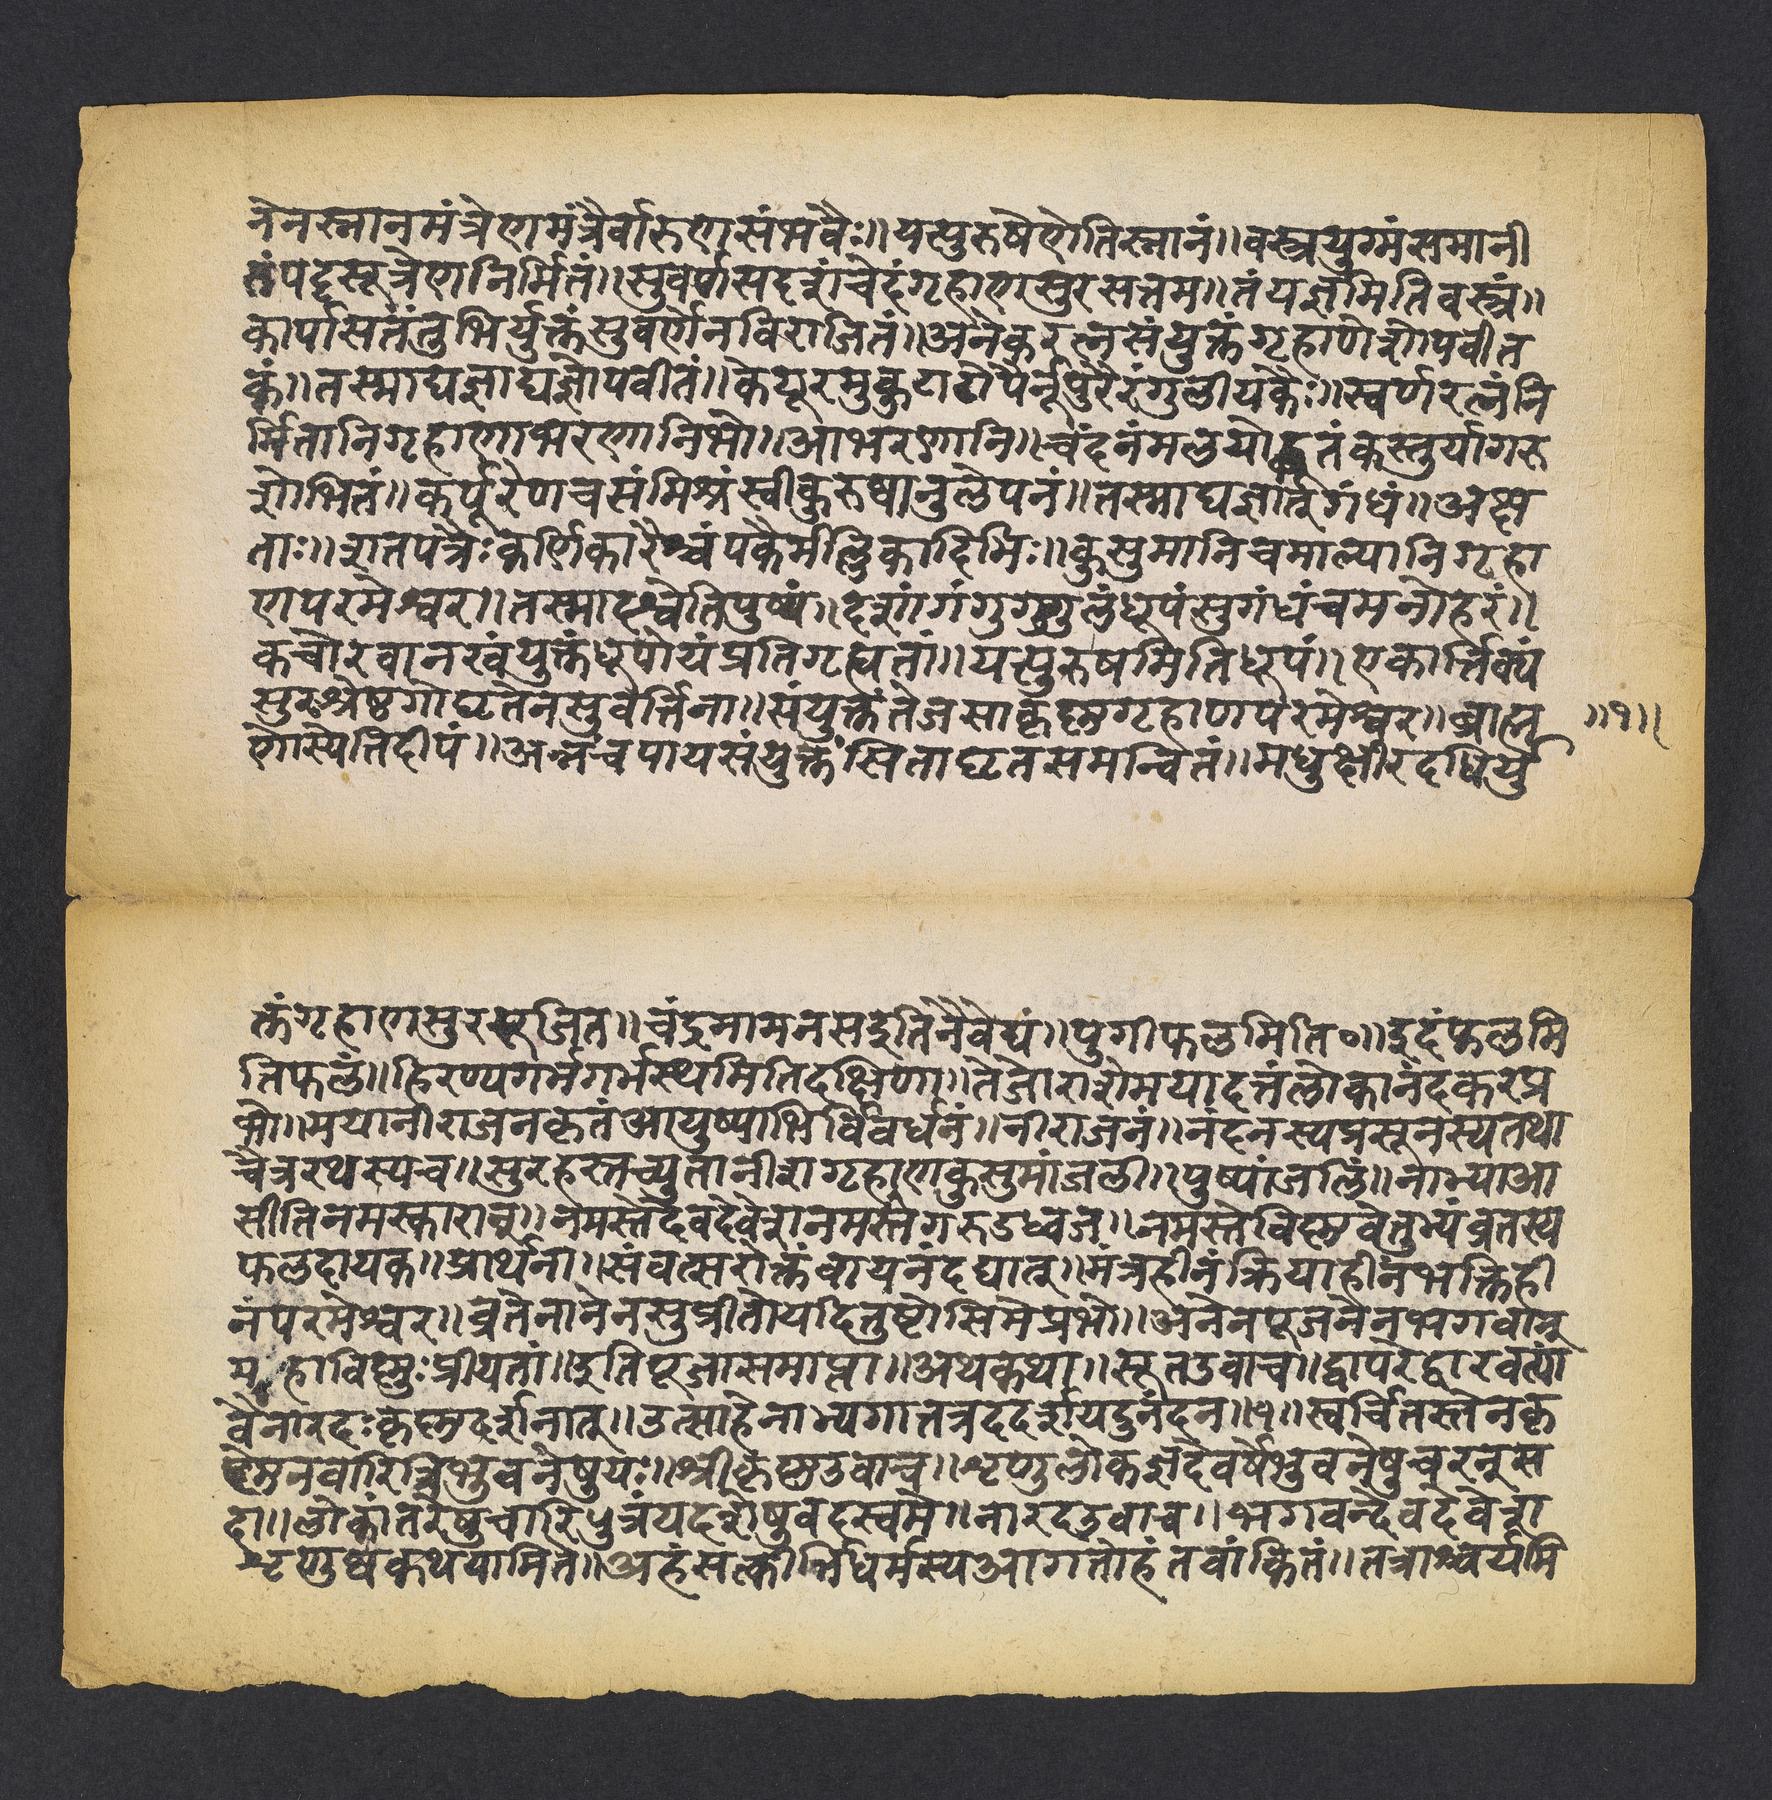 नेनस्नानमंत्रेणमंत्रैर्वारुणसंभवैः॥यत्पुरुषेणेतिस्नानं॥वस्त्रयुग्मंसमानी
तंपट्टसूत्रेणनिर्मितं॥सुवर्णसदृशंचेदंगृहाणसुरसत्तम॥तंयज्ञमितिवस्त्रं॥
कार्पासतंतुभिर्युक्तंसुवर्णेनविराजितं॥अनेकरत्नसंयुक्तंगृहाणेशोपवीत
कं॥तस्माद्यज्ञाद्यज्ञोपवीतं॥केयूरमुकुटाटोपैर्नूपुरैरंगुलीयकैः॥स्वर्णरत्नंनि
र्मितानिगृहाणाभरणानिभो॥आभरणानि॥चंदनंमलयोद्भुतंकस्तुर्यागरु
शोभितं॥कर्पूरेणचसंमिश्रंस्वीकुरुष्वानुलेपनं॥तस्माद्यज्ञात्गंधं॥अक्ष
ताः॥शतपत्रैःकर्णिकारैश्चंपकैर्मल्लिकादिभिः॥कुसुमानिचमाल्यानिगृहा
णपरमेश्वर॥तस्मादश्वेतिपुष्पं॥दशांगंगुग्गुलंधूपंसुगंधंचमनोहरं॥
कचोरवानखंयुक्तंधूपोयंप्रतिगृह्यतां॥यत्पुरुषमितिधूपं॥एकार्त्तिक्यं
सुरश्रेष्ठगोघृतेनसुवर्त्तिना॥संयुक्तंतेजसाकृष्णगृहाणपरमेश्वर॥ब्राह्म ॥१॥
णोस्येतिदीपं॥अन्नंचपायसंयुक्तंसिताघृतसमन्वितं॥मधुक्षीरदधिर्यु
क्तंगृहाणसुरपूजित॥चंद्रमामनसइतिनैवेद्यं॥पुगीफलमिति०॥इदंफलमि
तिफलं॥हिरण्यगर्भगर्भस्थमितिदक्षिणा॥तेजोराशेमयादत्तंलोकानंदकरप्र
भो॥मयानीराजनकृतंआयुष्याभिर्विवर्धनं॥नीराजनं॥नंदनस्यप्रसूनस्यतथा
चैत्ररथस्यच॥सुरहस्तच्युतानीशगृहाणकुसुमांजली॥पुष्पांजलिं॥नाभ्याआ
सीतिनमस्कारान्॥नमस्तेदेवदेवेशनमस्तेगरुडध्वज॥नमस्तेविष्णवेतुभ्यंव्रतस्य
फलदायक॥प्रार्थना॥संवत्सरोक्तंवायनंदद्यात्॥मंत्रहीनंक्रियाहीनभक्तिही
नंपरमेश्वर॥व्रतेनानेनसुप्रीतोयदितुष्टोसिमेप्रभो॥अनेनपूजनेनभगवान्
महाविष्णुःप्रीयतां॥इतिपूजासमाप्ता॥अथकथा॥सूतउवाच॥द्वापरेद्वारवत्यां
वैनारदःकृष्णदर्शनात्॥उत्साहेनाभ्यगात्तत्रददर्शयदुनंदन॥१॥स्वर्चितस्तेनकृ
ष्णेनवारित्रिभुवनेषुयः॥श्रीकृष्णउवाच॥शृणुलोकज्ञदेवर्षेभुवनेषुचरन्स
दा॥लोकांतरेषुचारिपुत्रंयदशेषुवदस्वमे॥नारदउवाच॥भगवन्देवदेवेश
शृणुष्वकथयामिते॥अहंसत्कीर्त्तिधर्मस्यआगतोहंतवांकितं॥तत्राश्चर्यमि